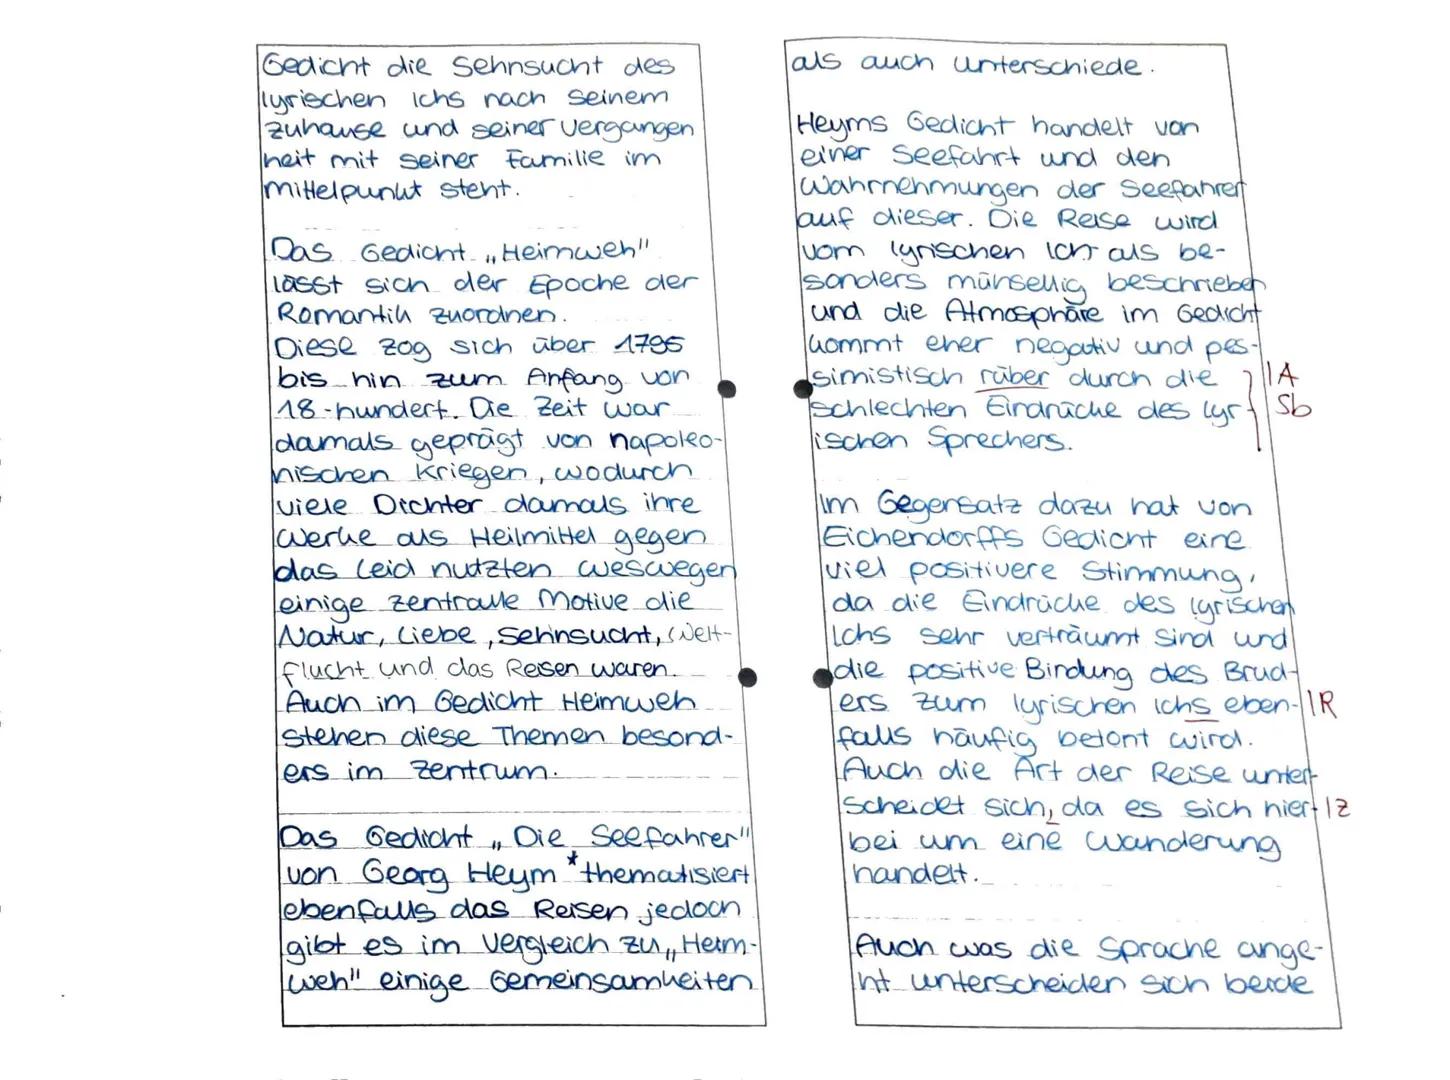 Gedicht die Sehnsucht des
lyrischen Ichs nach seinem
zuhause und seiner Vergangen
heit mit seiner Familie im
Mittelpunkt steht.
Das Gedicht „Heimweh"
lässt sich der Epoche der
Romantik zuordnen.
Diese zog sich über 1795
bis hin zum Anfang von
18-hundert. Die Zeit war
damals geprägt von napoleo-
nischen Kriegen, wodurch
viele Dichter damals ihre
Werke als Heilmittel gegen
das Leid nutzten weswegen
einige zentrale Motive die
Natur, Liebe, Sehnsucht, Welt-
flucht und das Reisen waren.
Auch im Gedicht Heimweh
stehen diese Themen besond-
ers im Zentrum.
Das Gedicht „Die Seefahrer"
von Georg Heym * thematisiert
ebenfalls das Reisen jedoch
gibt es im Vergleich zu „Heim-
weh" einige Gemeinsamkeiten
als auch unterschiede.
Heyms Gedicht handelt von
einer Seefahrt und den
Wahrnehmungen der Seefahrer
auf dieser. Die Reise wird
vom lyrischen Ich als be-
sonders mühsellig beschrieben
und die Atmosphäre im Gedicht
kommt eher negativ und pes-
simistisch rüber durch die IA
schlechten Eindrücke des lyr- Sb
ischen Sprechers.
Im Gegensatz dazu hat von
Eichendorffs Gedicht eine
viel positivere Stimmung,
da die Eindrücke des lyrischen
Ichs sehr verträumt sind und
die positive Bindung des Brud-
ers zum lyrischen Ichs eben- IR
falls häufig betont wird.
Auch die Art der Reise unter-
scheidet sich, da es sich hier- IZ
bei um eine Wanderung
handelt.
Auch was die Sprache ange-
ht unterscheiden sich beide